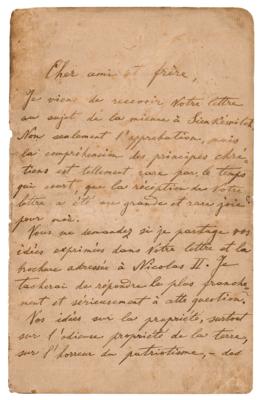 Cher ami et frère,
Je viens de recevoir votre lettre
au sujet de la mienne à Sienkewitch.
Non seulement l'approbation, mais
la compréhension des principes chré-
tiens est tellement rare par le temps
qui court, que la réception de votre
lettre a été une grande et rare joie
pour moi.
Vous me demandez si je partage vos
idées exprimées dans votre lettre et la
brochure adressée à Nicolas II. Je
tacherai de répondre le plus franche-
ment et sérieusement à cette question.
Vos idées sur la propriété, surtout
sur l'odieuse propriété de la terre,
sur l'horreur du patriotisme, – des